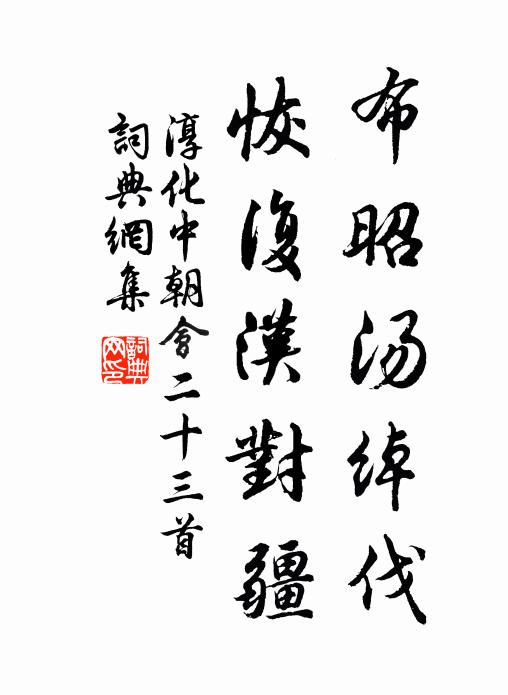 布昭汤綽伐
恢復漢對疆
淳化中朝會二十三首
詞典網集
詞典
网印